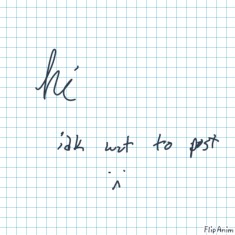 hi
idk wat to post
:^:
FlipAnim